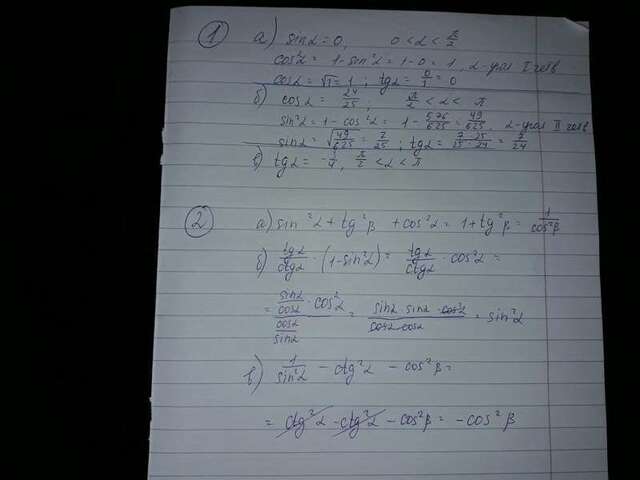 1 а) sin α = 0, 0 < α < π/2
cos²α = 1 - sin²α = 1 - 0 = 1, α - угол I четв
cos α = √1 = 1; tg α = 0/1 = 0
б) cos α = 24/25; π/2 < α < π
sin²α = 1 - cos²α = 1 - 576/625 = 49/625, α - угол II четв
sin α = √49/625 = 7/25; tg α = 7·25/25·24 = 7/24
в) tg α = -1/4, π/2 < α < π
2 а) sin²α + tg²β + cos²α = 1 + tg²β = 1/cos²β
б) tgα/ctgα · (1 - sin²α) = tgα/ctgα · cos²α =
= sinα/cosα · cos²α / cosα/sinα = sinα · sinα · cos²α / cosα · cosα = sin²α
в) 1/sin²α - ctg²α - cos²β =
= ctg²α - ctg²α - cos²β = - cos²β